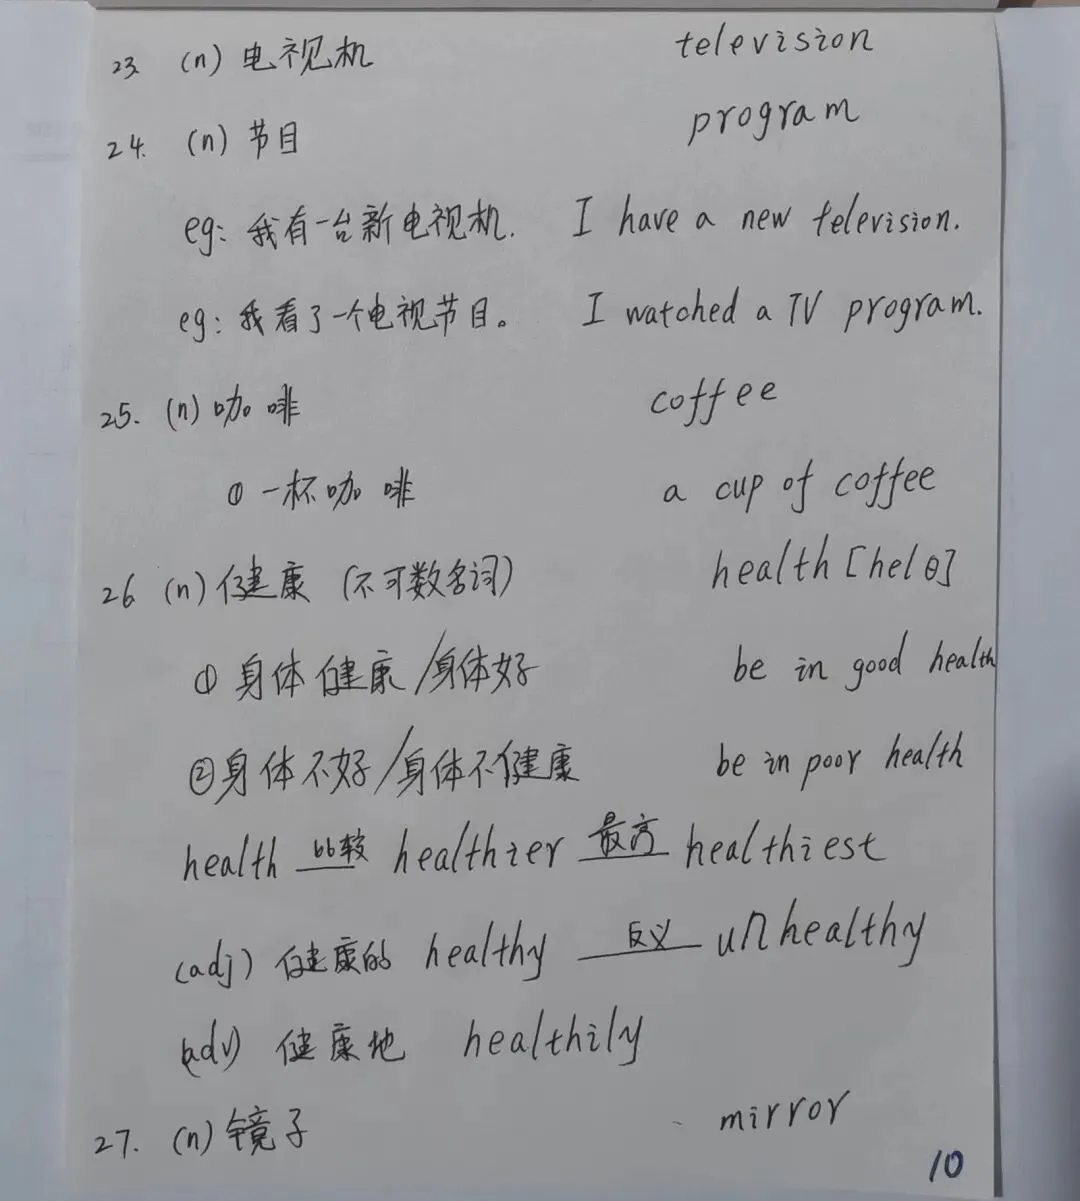 23. (n) 电视机 television
24. (n) 节目 program
eg: 我有一台新电视机. I have a new television.
eg: 我看了一个电视节目。 I watched a TV program.
25. (n) 咖啡 coffee
① 一杯咖啡 a cup of coffee
26 (n) 健康 (不可数名词) health [helθ]
① 身体健康/身体好 be in good health
② 身体不好/身体不健康 be in poor health
health 比较 healthier 最高 healthiest
(adj) 健康的 healthy 反义 unhealthy
(adv) 健康地 healthily
27. (n) 镜子 mirror
10